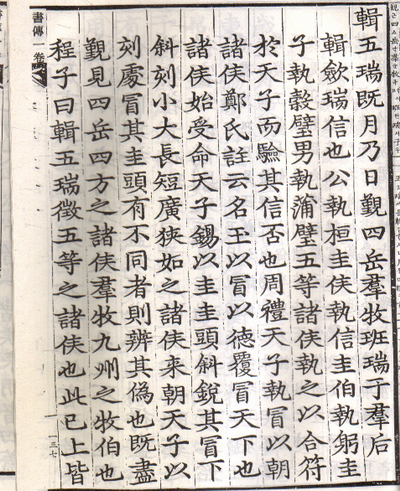 輯五瑞既月乃日覲四岳羣牧班瑞于羣后
輯斂瑞信也公執桓圭侯執信圭伯執躬圭
子執穀璧男執蒲璧五等諸侯執之以合符
於天子而驗其信否也周禮天子執冒以朝
諸侯鄭氏註云名玉以冒以德覆冒天下也
諸侯始受命天子錫以圭圭頭斜銳其冒下
斜刻小大長短廣狹如之諸侯來朝天子以
刻處冒其圭頭有不同者則辨其僞也既盡
覲見四岳四方之諸侯羣牧九州之牧伯也
程子曰輯五瑞徵五等之諸侯也此已上皆
書傳一卷
一三七